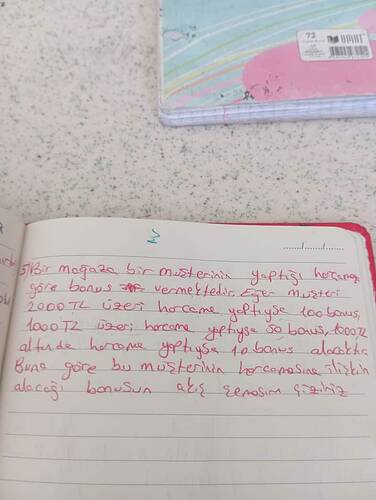 72
5) Bir mağaza bir müşterinin yaptığı harcamaya
göre bonus vermektedir. Eğer müşteri
2000 TL üzeri harcama yaptıysa 100 bonus,
1000 TL üzeri harcama yaptıysa 50 bonus, 1000 TL
altında harcama yaptıysa 10 bonus alacaktır.
Buna göre bu müşterinin harcamasına ilişkin
alacağı bonusun akış şemasını çiziniz